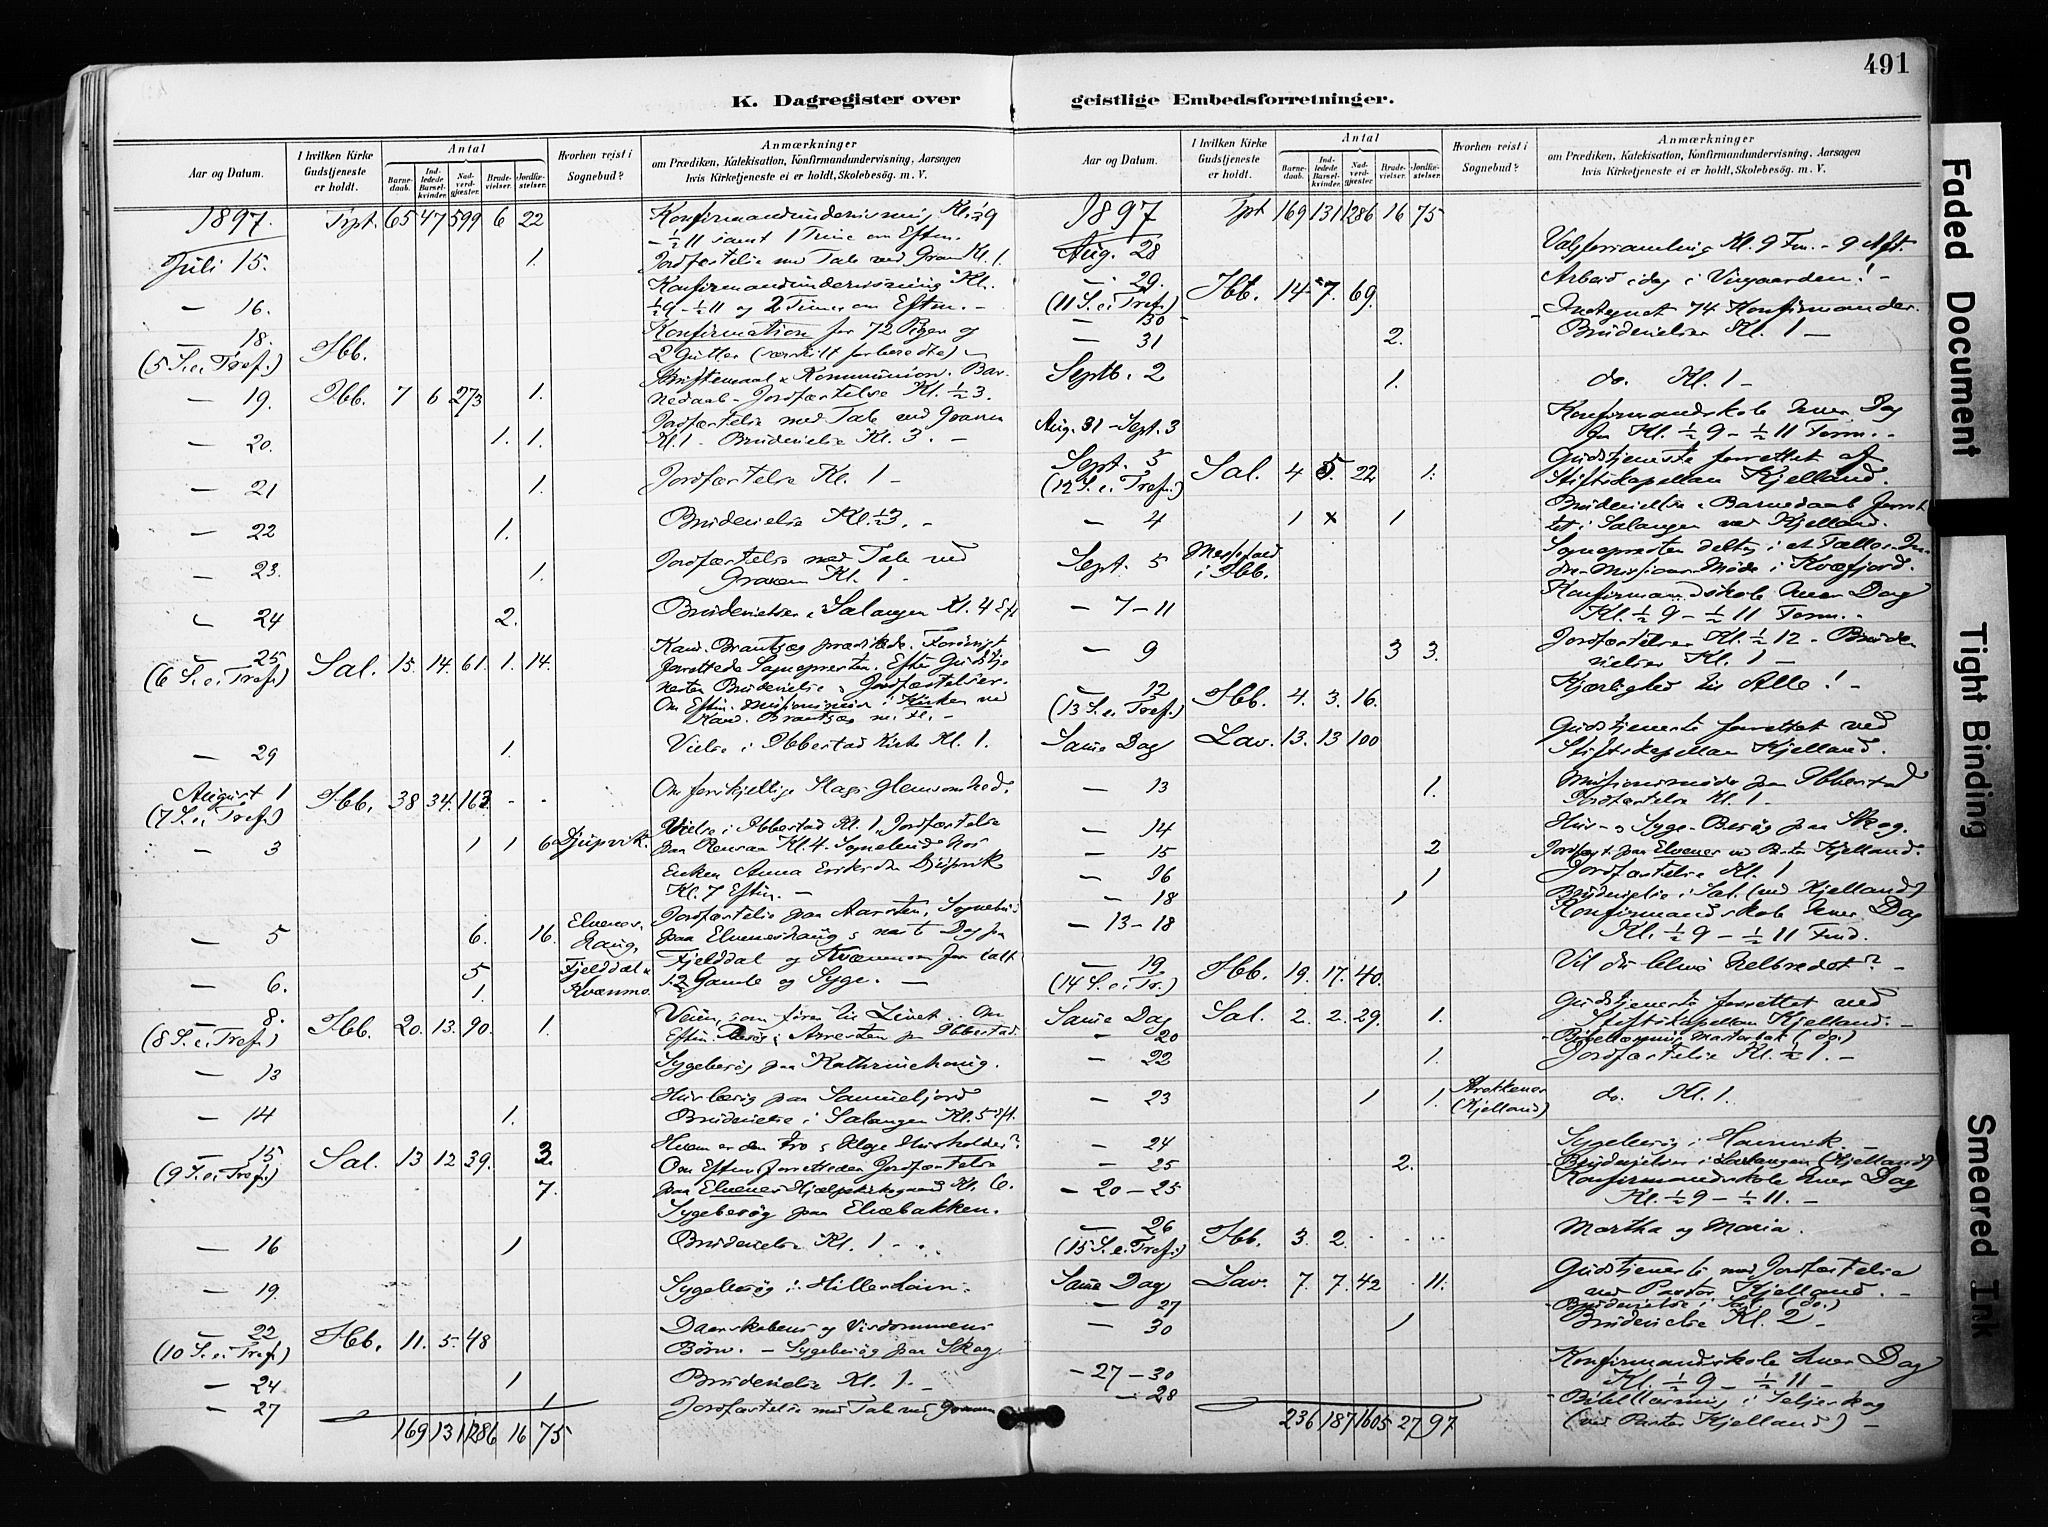 491
K. Dagregister over geistlige Embedsforretninger.
Aar og Datum.
I hvilken Kirke Gudstjeneste er holdt.
Antal
Barnedaab.
Indledede Barselkvinder.
Nadverdgjester.
Brudevielser.
Jordfæstelser.
Hvorhen reist i Sognebud?
Anmærkninger
om Prædiken, Katekisation, Konfirmandundervisning, Aarsagen
hvis Kirketjeneste ei er holdt, Skolebesøg. m. V.
1897. Trpt. 65 47 599 6 22 Konfirmandundervisning Kl. ½9
– ½11 samt 1 Time om Eftm.
Juli 15. 1. Jordfæstelse med Tale ved Graven Kl. 1.
Konfirmandundervisning Kl.
— 16. ½9 – ½11 og 2 Timer om Eftm. –
— 18. Konfirmation for 72 Piger og
(5 S. e. Tref.) Ibb. 2 Gutter (særskilt forberedte) –
Skriftemaal & Kommunion. Bar-
— 19. Ibb. 7 6 273 1. nedaab – Jordfæstelse Kl. ½3.
Jordfæstelse med Tale ved Graven
— 20. 1. 1. Kl. 1 – Brudevielse Kl. 3. –
— 21 1. Jordfæstelse Kl. 1 –
— 22 1. Brudevielse Kl. ½3. –
— 23. 1. Jordfæstelse med Tale ved
Graven Kl. 1 –
— 24 2. Brudevielser i Salangen Kl. 4 Eft
— 25 Kand. Brantzæg prædikede. Forøvrigt
(6 S. e. Tref.) Sal. 15. 14. 61. 1. 14. forrettede Sognepresten. Efter Gudstje
nesten Brudevielse & Jordfæstelser.
Om Eftm. Missionsmøde i Kirken ved
Kand. Brantzæg m. fl. –
— 29 1. Vielse i Ibbestad Kirke Kl. 1.
August 1
(7 S. e. Tref.) Ibb. 38 34. 163. - - Om forskjellige Slags Glemsomhed.
— 3 1 1 6 Djupvik. Vielse i Ibbestad Kl. 1, Jordfæstelse
paa Rensaa Kl. 4. Sognebud hos
Enken Anna Eriksdtr Djupvik
Kl. 7 Eftm. –
— 5 6. 16. Elveneshaug, Jordfæstelse paa Aarsten, Sognebud
paa Elveneshaug & næste Dag paa
— 6. 5 1. Fjelddal & Kvænmo. Fjelddal og Kvænmo for ialt
12 Gamle og Syge. –
— 8.
(8 S. e. Tref.) Ibb. 20. 13. 90. 1. Veien, som fører til Livet. Om
Eftm. Besøg i Arresten paa Ibbestad.
— 13 Sygebesøg paa Kathrinehaug.
— 14 1. Husbesøg paa Gamnefjord
Brudevielse i Salangen Kl. 5 Aft.
— 15 Hvem er den tro & kloge Husholder?
(9 S. e. Tref.) Sal. 13 12 39. 3. Om Eftm. forrettedes Jordfæstelse
7. paa Elvenes Hjælpekirkegaard Kl. 6.
Sygebesøg paa Elvebakken.
— 16 1 Brudevielse Kl. 1 –
— 19. Sygebesøg i Hillerhavn.
— 22 Daarskabens og Visdommens
(10 S. e. Tref.) Ibb. 11. 5. 48 Børn. – Sygebesøg paa Skog.
— 24 1 Brudevielse Kl. 1. –
— 27 1 Jordfæstelse med Tale ved Graven
169 131 1286 16 75
Aar og Datum.
I hvilken Kirke Gudstjeneste er holdt.
Antal
Barnedaab.
Indledede Barselkvinder.
Nadverdgjester.
Brudevielser.
Jordfæstelser.
Hvorhen reist i Sognebud?
Anmærkninger
om Prædiken, Katekisation, Konfirmandundervisning, Aarsagen
hvis Kirketjeneste ei er holdt, Skolebesøg. m. V.
1897 Tpt 169 131 1286 16 75
Aug. 28 Valgforsamling Kl. 9 Fm. – 9 Aft.
— 29. Arbeid idag i Vingaarden! –
(11 S. e. Tref.) Ibb. 14 7. 69.
— 30 – Indtegnet 74 Konfirmander.
— 31 2. Brudevielser Kl. 1 –
Septb. 2 1. do. Kl. 1 –
Aug. 31 – Sept. 3 Konfirmandskole hver Dag
fra Kl. ½9 – ½11 Form. –
Sept. 5 Gudstjeneste forrettet af
(12 S. e. Tref.) Sal. 4 5. 22 1. Stiftskapellan Kjelland.
— 4 1 x 1 Brudevielse & Barnedaab forret
tet i Salangen ved Kjelland.
Sept. 5 Messefald i Ibb. Sognepresten deltog i et Fælles-In-
dre-Missions-Møde i Kvæfjord.
— 7 – 11 Konfirmandskole hver Dag
Kl. ½9 – ½11 Form.
— 9 3 3. Jordfæstelser Kl. ½12 – Brude
vielser Kl. 1 –
— 12 Kjærlighed til Alle! –
(13 S. e. Tref.) Ibb. 4. 3. 16.
Same Dag Lav. 13. 13 100 Gudstjeneste forrettet ved
Stiftskapellan Kjelland.
— 13 1. Missionsmøde paa Ibbestad
Jordfæstelse Kl. 1.
— 14 Hus- & Syge-Besøg paa Skog.
— 15 2 Jordfæst. paa Elvenes ved Pastor Kjelland.
— 16 1 Jordfæstelse Kl. 1
— 18 1 Brudevielse i Sal. (ved Kjelland)
— 13 – 18 Konfirmandskole hver Dag
Kl. ½9 – ½11 Fmd.
— 19 Vil du blive helbredet? –
(14 S. e. Tr.) Ibb. 19. 17. 40.
Same Dag Sal. 2. 2. 29. 1. Gudstjeneste forrettet ved
Stiftskapellan Kjelland. –
— 20 – Bibellæsning (do.)
— 22 1. Jordfæstelse Kl. ½1. –
— 23 1 1. (Kjelland) do. Kl. 1.
— 24 Sygebesøg i Hamnvik. –
— 25 2. – Brudevielser i Salangen (Kjelland)
— 20 – 25 Konfirmandskole hver Dag
Kl. ½9 – ½11. –
— 26 Martha og Maria.
(15 S. e. Tref.) Ibb. 3. 2.
Same Dag Lav. 7. 7. 42 11. Gudstjeneste med Jordfæstelse
ved Pastor Kjelland. –
— 27 – Brudevielse i Sal. (do.)
— 30 1 Brudevielse Kl. 2 –
— 27 – 30 Konfirmandskole hver Dag
Kl. ½9 – ½11 –
— 28 – Bibellæsning i Seljeskog
(ved Pastor Kjelland) –
236 187 1605 27 97
Faded Document
Tight Binding
Smeared Ink